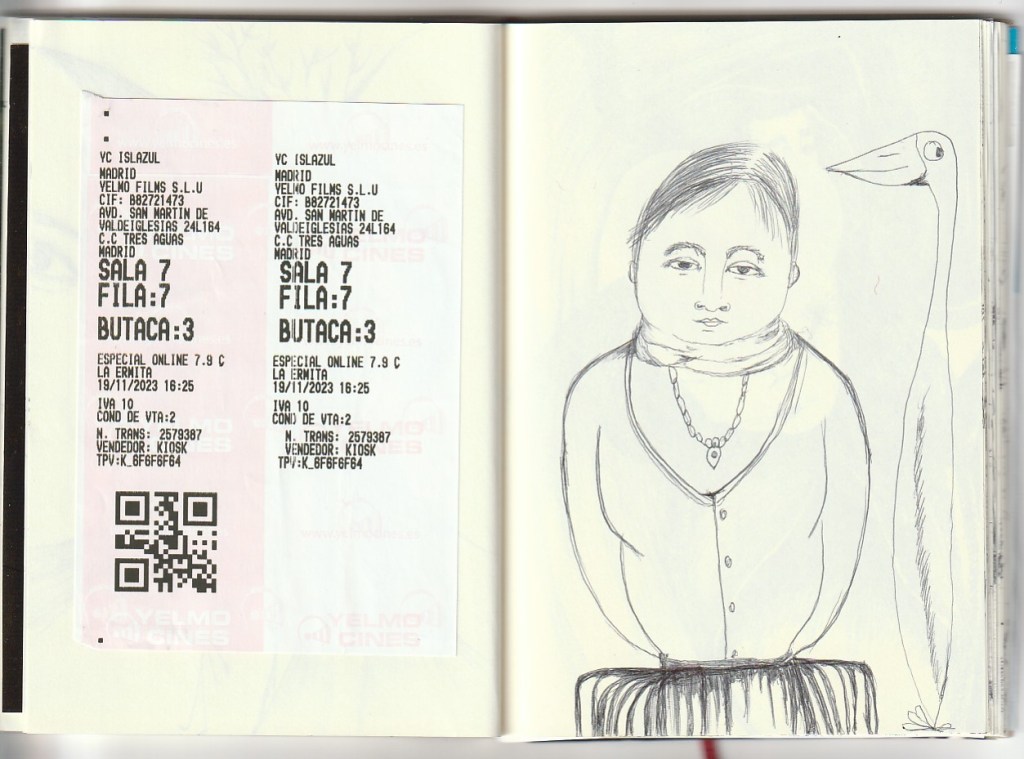 YC ISLAZUL
MADRID
YELMO FILMS S.L.U
CIF: B82721473
AVD. SAN MARTIN DE
VALDEIGLESIAS 24L164
C.C TRES AGUAS
MADRID
SALA 7
FILA:7
BUTACA:3
ESPECIAL ONLINE 7.9 C
LA ERMITA
19/11/2023 16:25
IVA 10
COND DE VTA:2
N. TRANS: 2579387
VENDEDOR: KIOSK
TPV:K_6F6F6F64
YELMO
CINES
YC ISLAZUL
MADRID
YELMO FILMS S.L.U
CIF: B82721473
AVD. SAN MARTIN DE
VALDEIGLESIAS 24L164
C.C TRES AGUAS
MADRID
SALA 7
FILA:7
BUTACA:3
ESPECIAL ONLINE 7.9 C
LA ERMITA
19/11/2023 16:25
IVA 10
COND DE VTA:2
N. TRANS: 2579387
VENDEDOR: KIOSK
TPV:K_6F6F6F64
YELMO
CINES